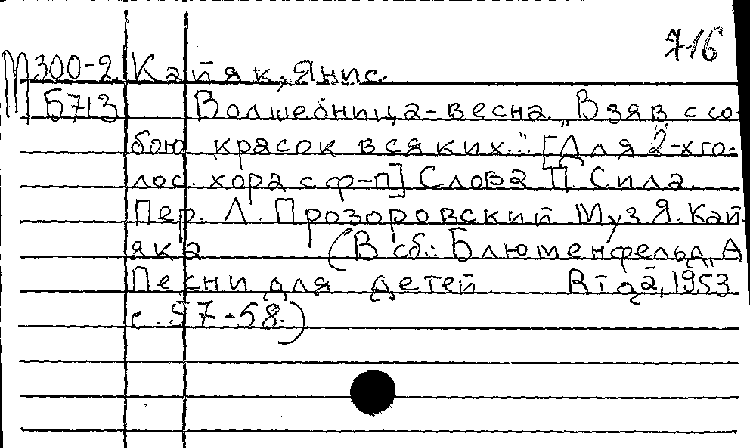 716
М300-2 Кайяк, Янис.
Б713 Волшебница-весна „Взяв с со-
бою красок всяких.." [Для 2-хго-
лос. хора с ф-п] Слова П. Сила.
Пер. Л. Прозоровский Муз Я. Кай-
яка (В сб.: Блюменфельд, А
Песни для детей Rīgā, 1953
с. 57-58.)